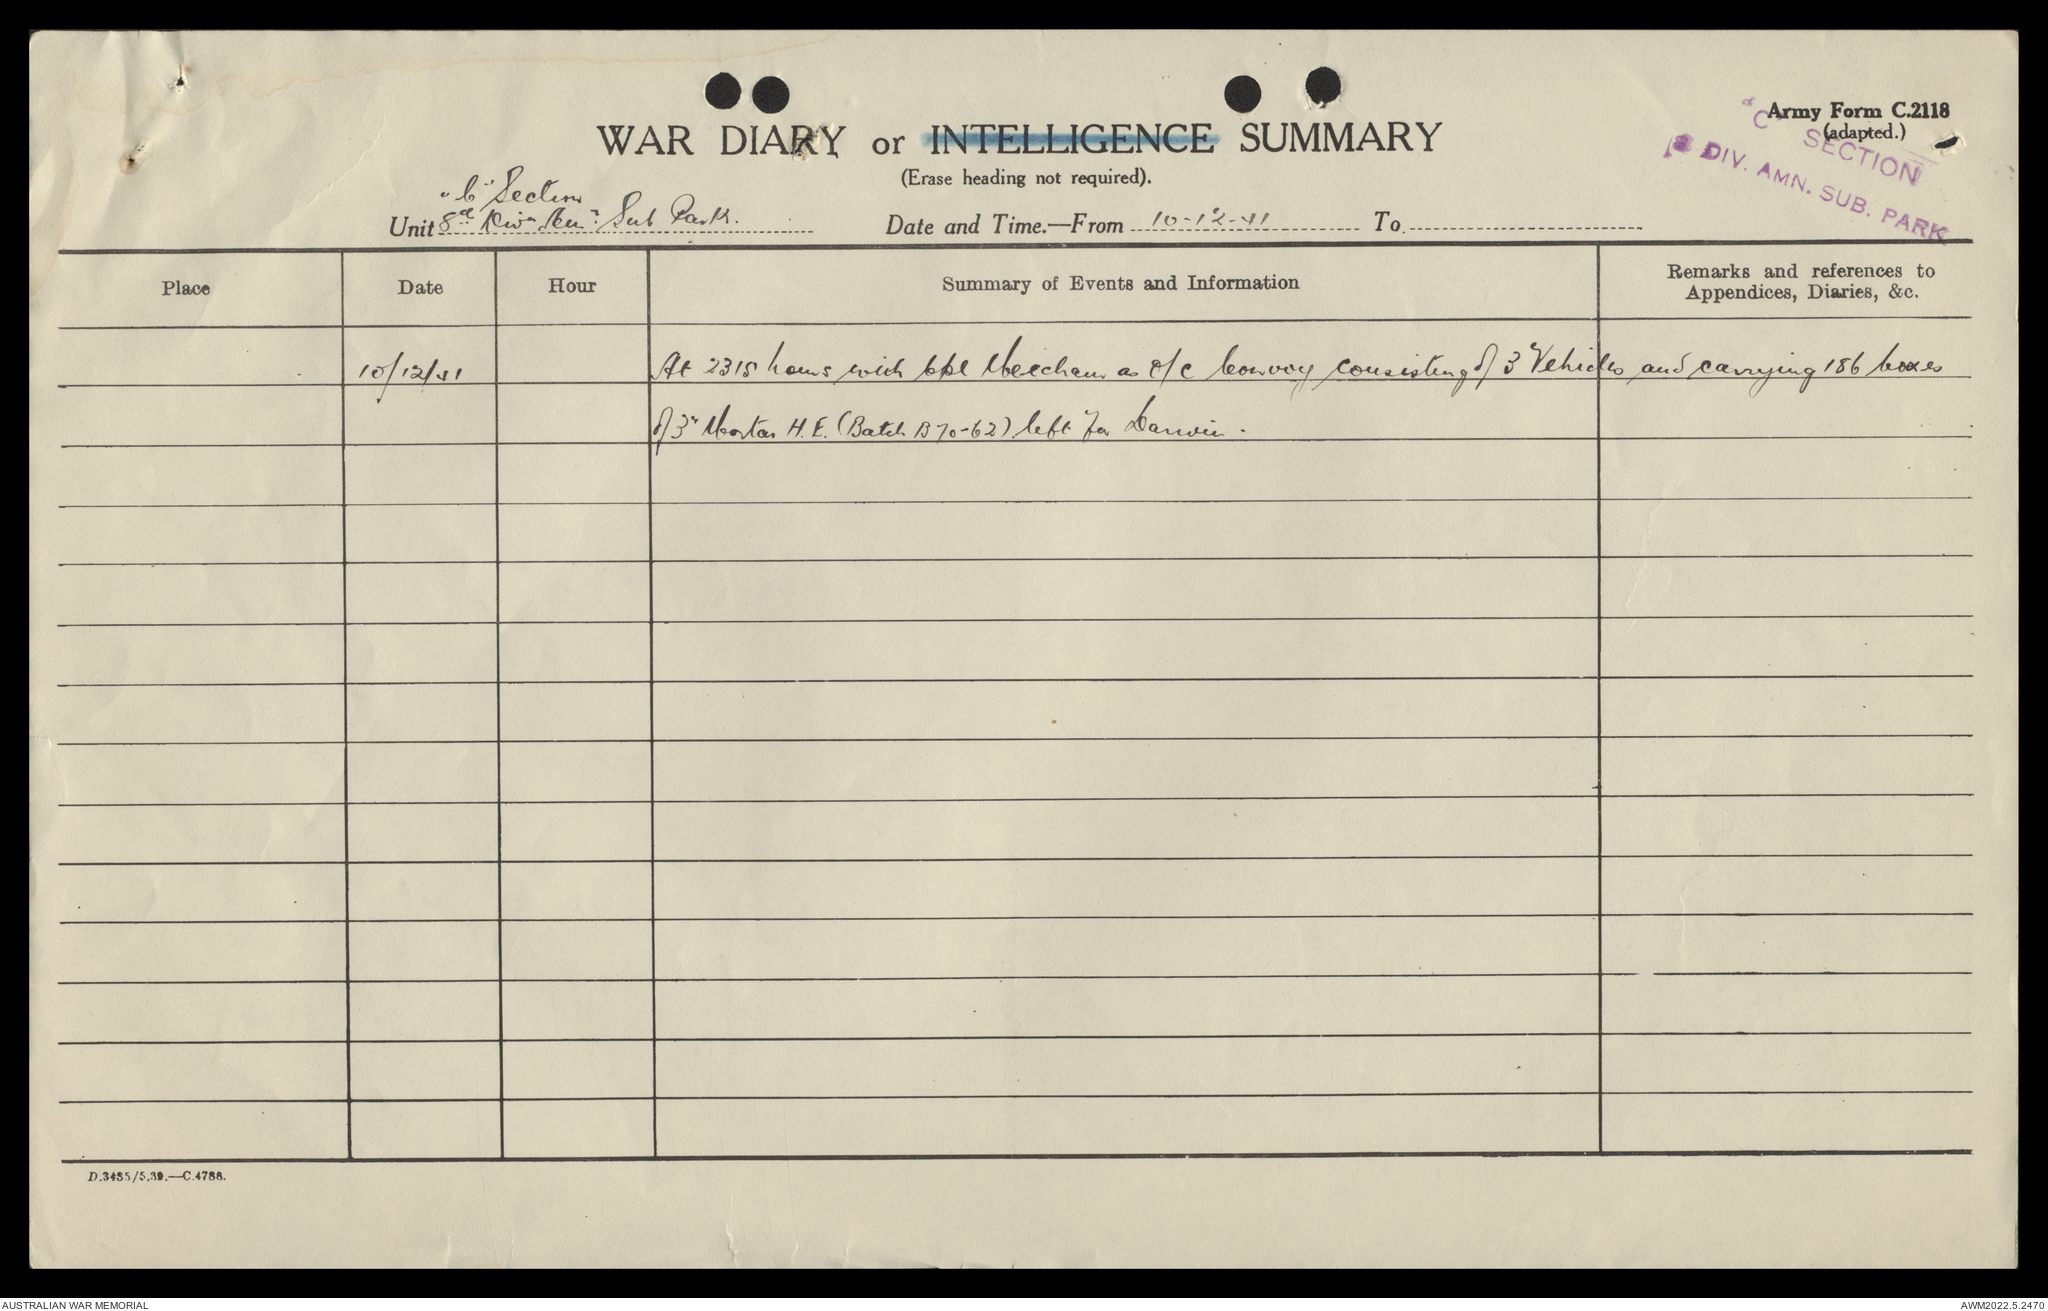 Army Form C.2118
(adapted.)
"C" SECTION
8 DIV. AMN. SUB. PARK
WAR DIARY or INTELLIGENCE SUMMARY
(Erase heading not required).
"C" Section
Unit 8th Divn Amn Sub Park. Date and Time.—From 10-12-41 To
Place Date Hour Summary of Events and Information Remarks and references to
Appendices, Diaries, &c.
10/12/41 At 2315 hours with Cpl Meecham as o/c Convoy consisting of 3 Vehicles and carrying 186 boxes
of 3" Mortar H.E. (Batch B70-62) left for Darwin.
D.3485/5.39.—C.4788.
AUSTRALIAN WAR MEMORIAL AWM2022.5.2470